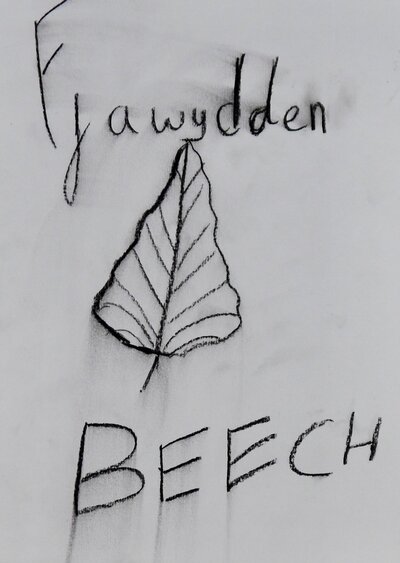 Ffawydden
BEECH